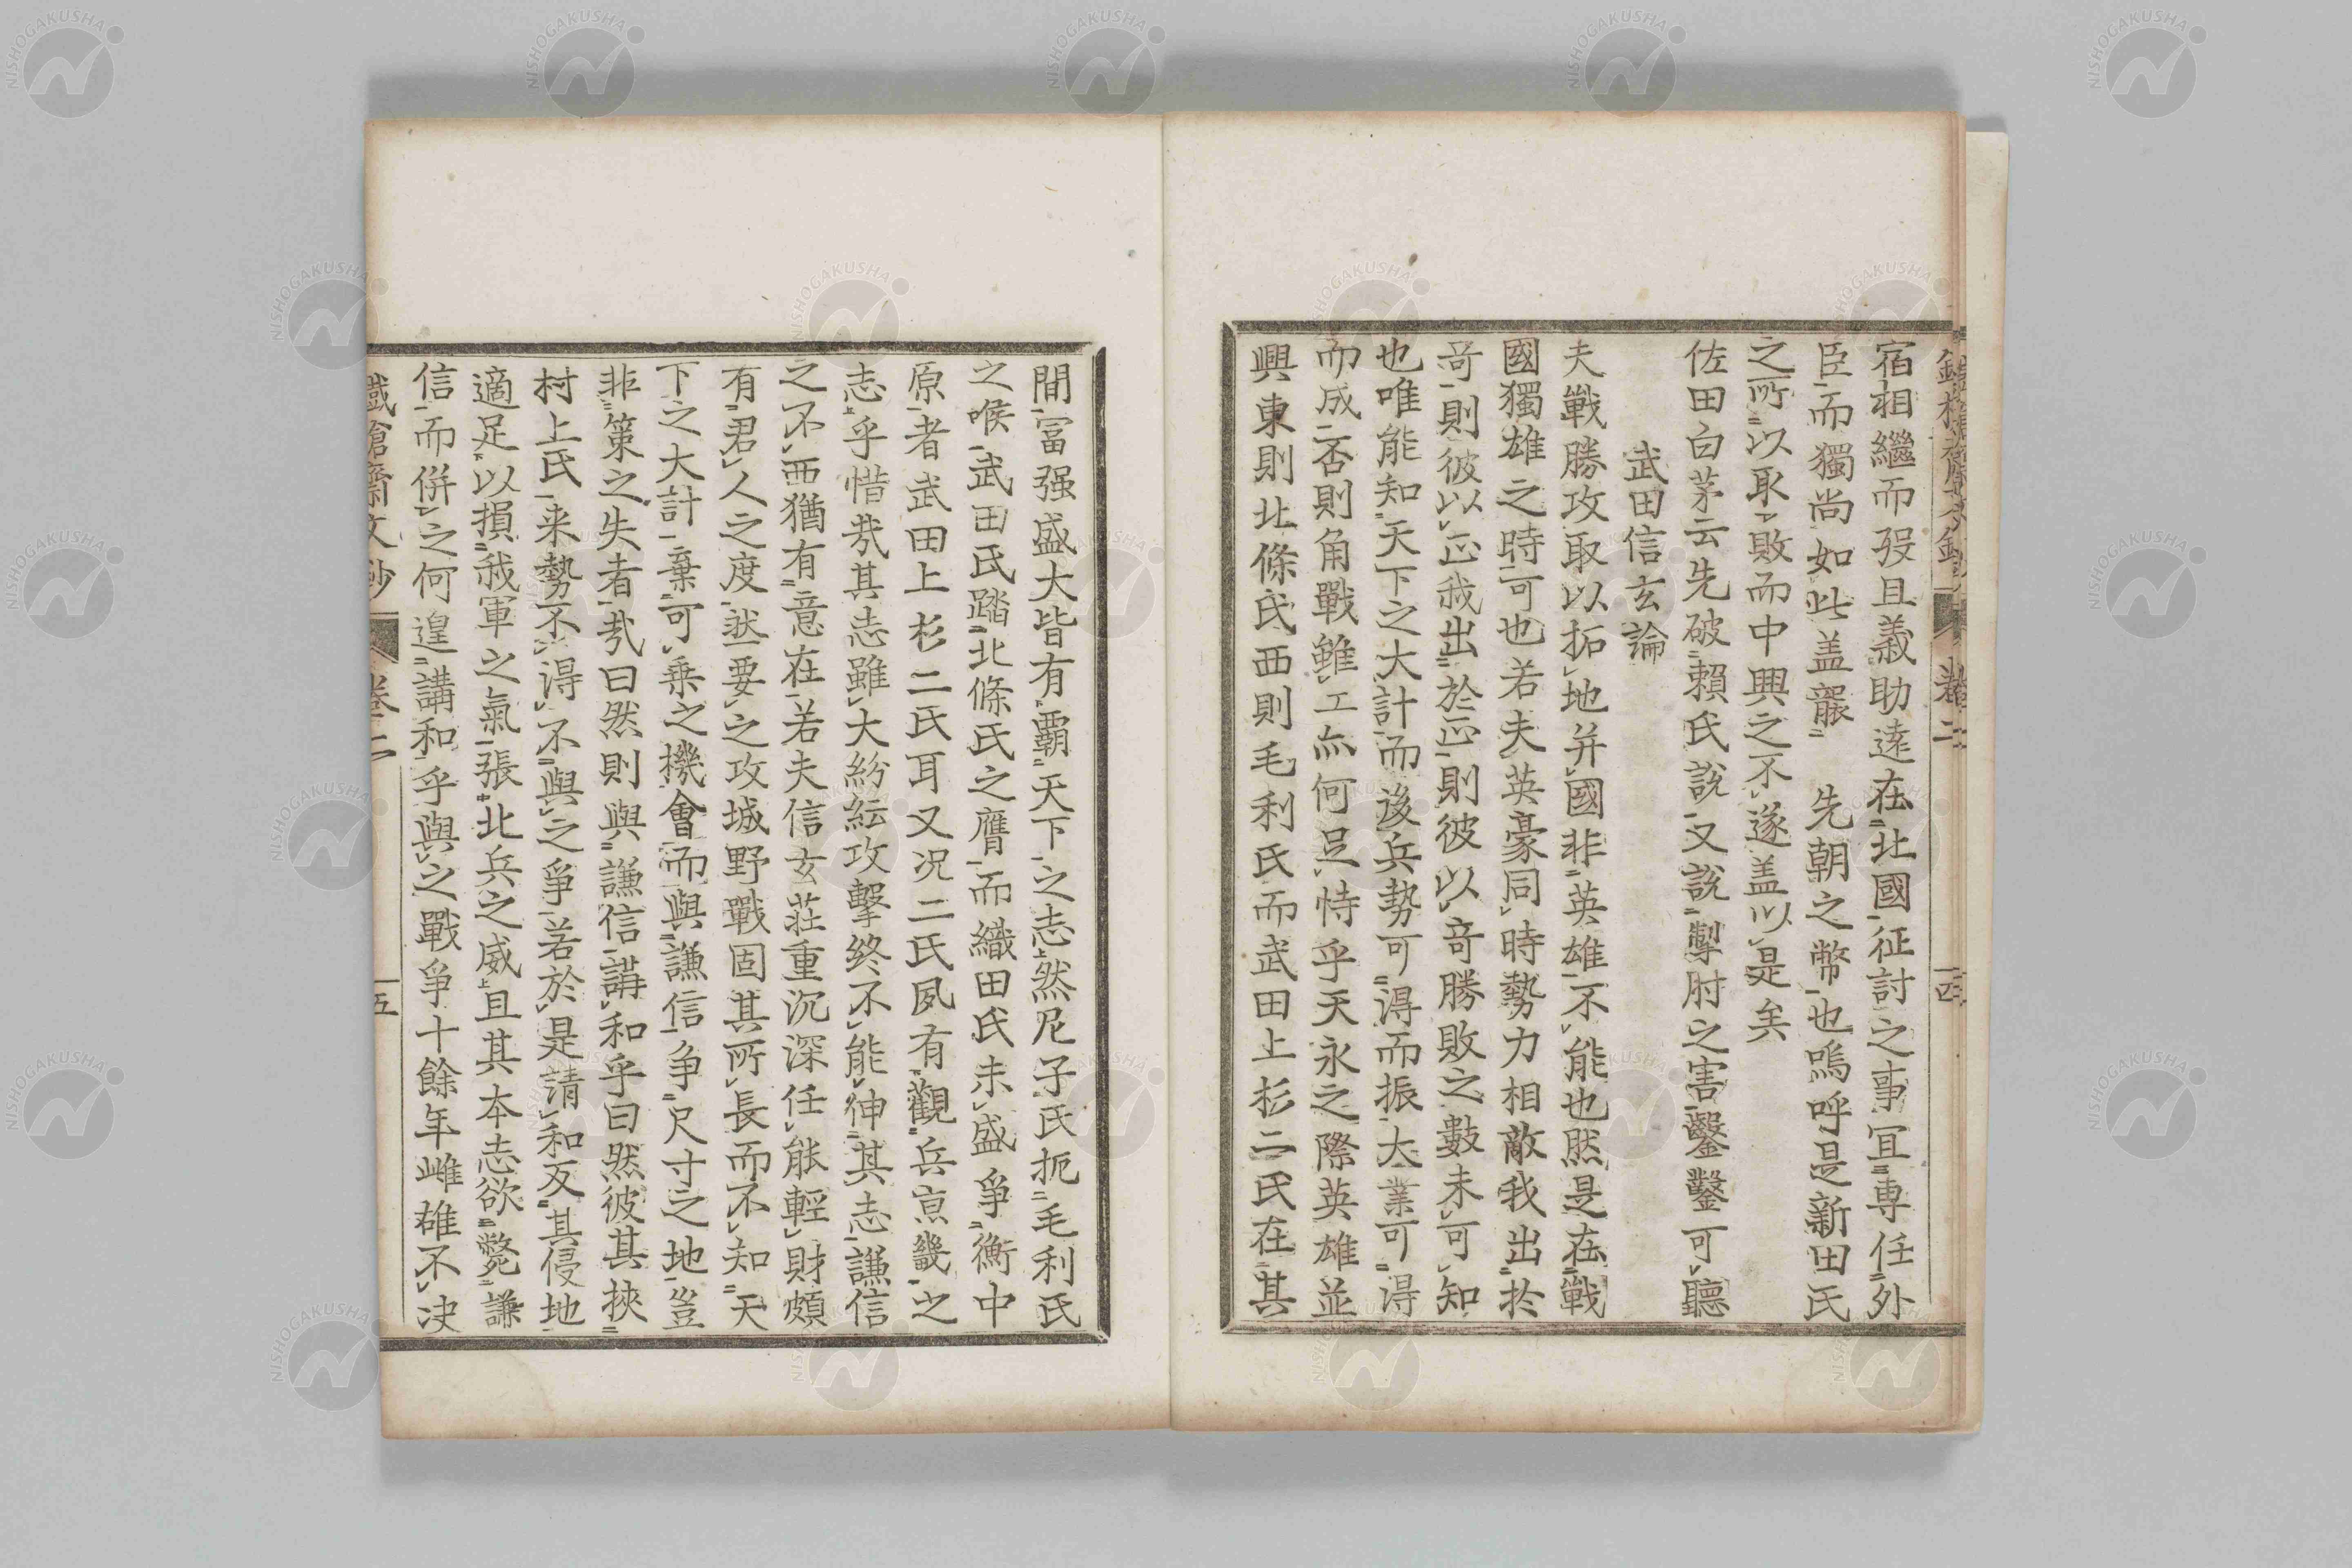 宿相繼而歿且義助遠在北國征討之事宜專任外
臣而獨尚如此盖龍 先朝之幣也嗚呼是新田氏
之所以取敗而中興之不遂盖以是矣
佐田白茅云先破賴氏說又說掣肘之害鑿鑿可聽
武田信玄論
夫戰勝攻取以拓地并國非英雄不能也然是在戰
國獨雄之時可也若夫英豪同時勢力相敵我出於
奇則彼以正我出於正則彼以奇勝敗之數未可知
也唯能知天下之大計而後兵勢可得而振大業可得
而成否則角戰雖工亦何足恃乎天永之際英雄並
興東則北條氏西則毛利氏而武田上杉二氏在其
間富强盛大皆有覇天下之志然尼子氏扼毛利氏
之喉武田氏踏北條氏之膺而織田氏未盛爭衡中
原者武田上杉二氏耳又况二氏夙有觀兵京畿之
志乎惜哉其志雖大紛紜攻擊終不能伸其志謙信
之不西猶有意在若夫信玄莊重沉深任能輕財頗
有君人之度然要之攻城野戰固其所長而不知天
下之大計棄可乘之機會而與謙信爭尺寸之地豈
非策之失者哉曰然則與謙信講和乎曰然彼其挾
村上氏来勢不得不與之爭若於是請和反其侵地
適足以損我軍之氣張北兵之威且其本志欲斃謙
信而併之何遑講和乎與之戰爭十餘年雌雄不决
鐵槍齋文鈔 卷二 五
NISHOGAKUSHA